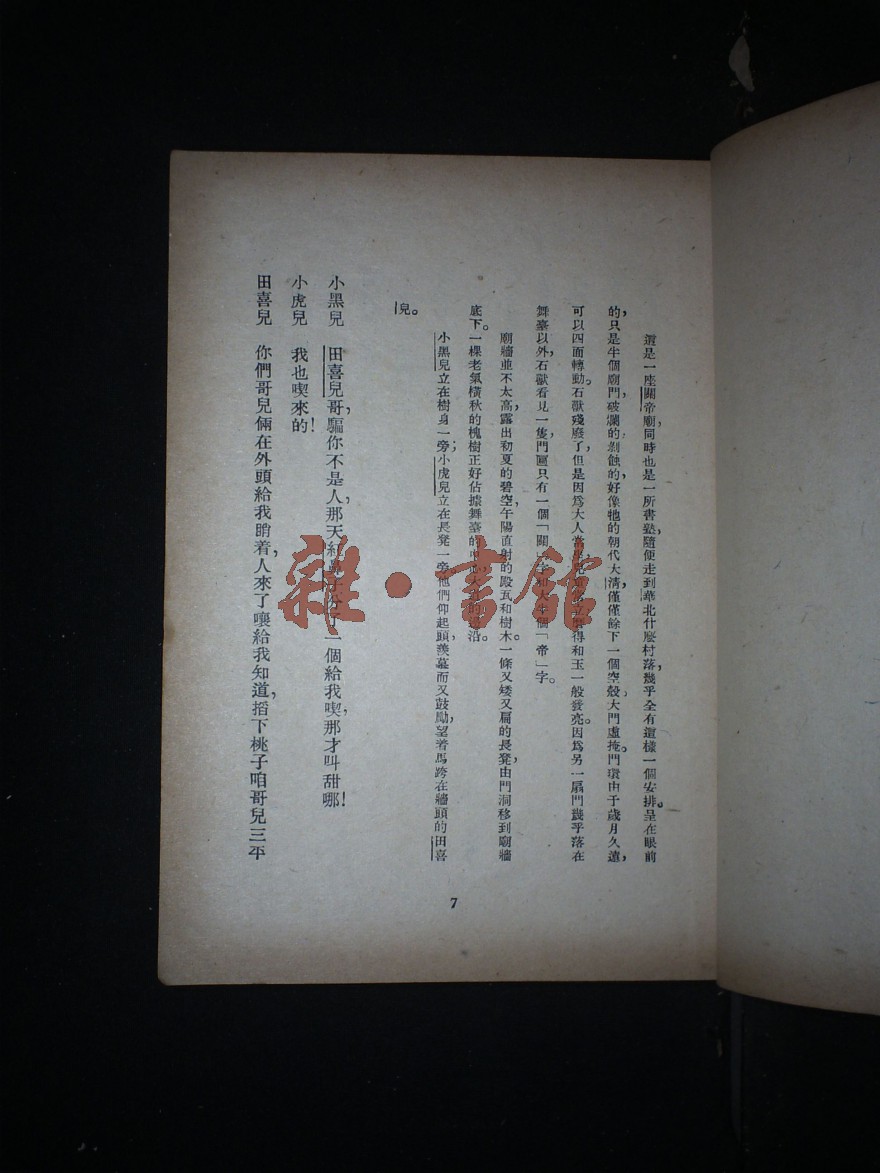 這是一座關帝廟,同時也是一所書塾,隨便走到華北什麼村落,幾乎全有這樣一個安排。呈在眼前
的,只是半個廟門,破爛的,剝蝕的,好像牠的朝代大清,僅僅餘下一個空殼。大門虛掩。門環由于歲月久遠,
可以四面轉動。石獸殘廢了,但是因爲大人當得和玉一般發亮。因爲另一扇門幾乎落在
舞臺以外,石獸看見一隻,門匾只有一個「關」字和大半個「帝」字。
廟牆並不太高,露出初夏的碧空,午陽直射的殿瓦和樹木。一條又矮又扁的長凳由門洞移到廟牆
底下。一棵老氣橫秋的槐樹正好佔據舞臺的沿。
小黑兒立在樹身一旁;小虎兒立在長凳一旁,他們仰起頭,羨慕而又鼓勵,望着馬跨在牆頭的田喜
兒。
小黑兒 田喜兒哥,騙你不是人,那天紅鼻子一個給我喫,那才叫甜哪!
小虎兒 我也喫來的!
田喜兒 你們哥兒倆在外頭給我睄着,人來了嚷給我知道,掐下桃子咱哥兒三平
7
雜·書館